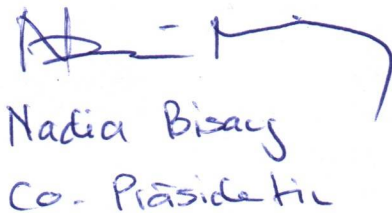 Nadia Bisang
Co-Präsidentin